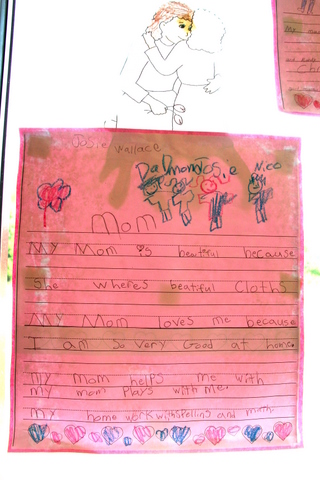 Josie Wallace
Dad mom Josie Nico
Mom
My Mom is beatiful because
She wheres beatiful cloths
My Mom loves me because
I am so very Good at home.
My mom helps me with
My mom plays with me.
My home work with spelling and math.